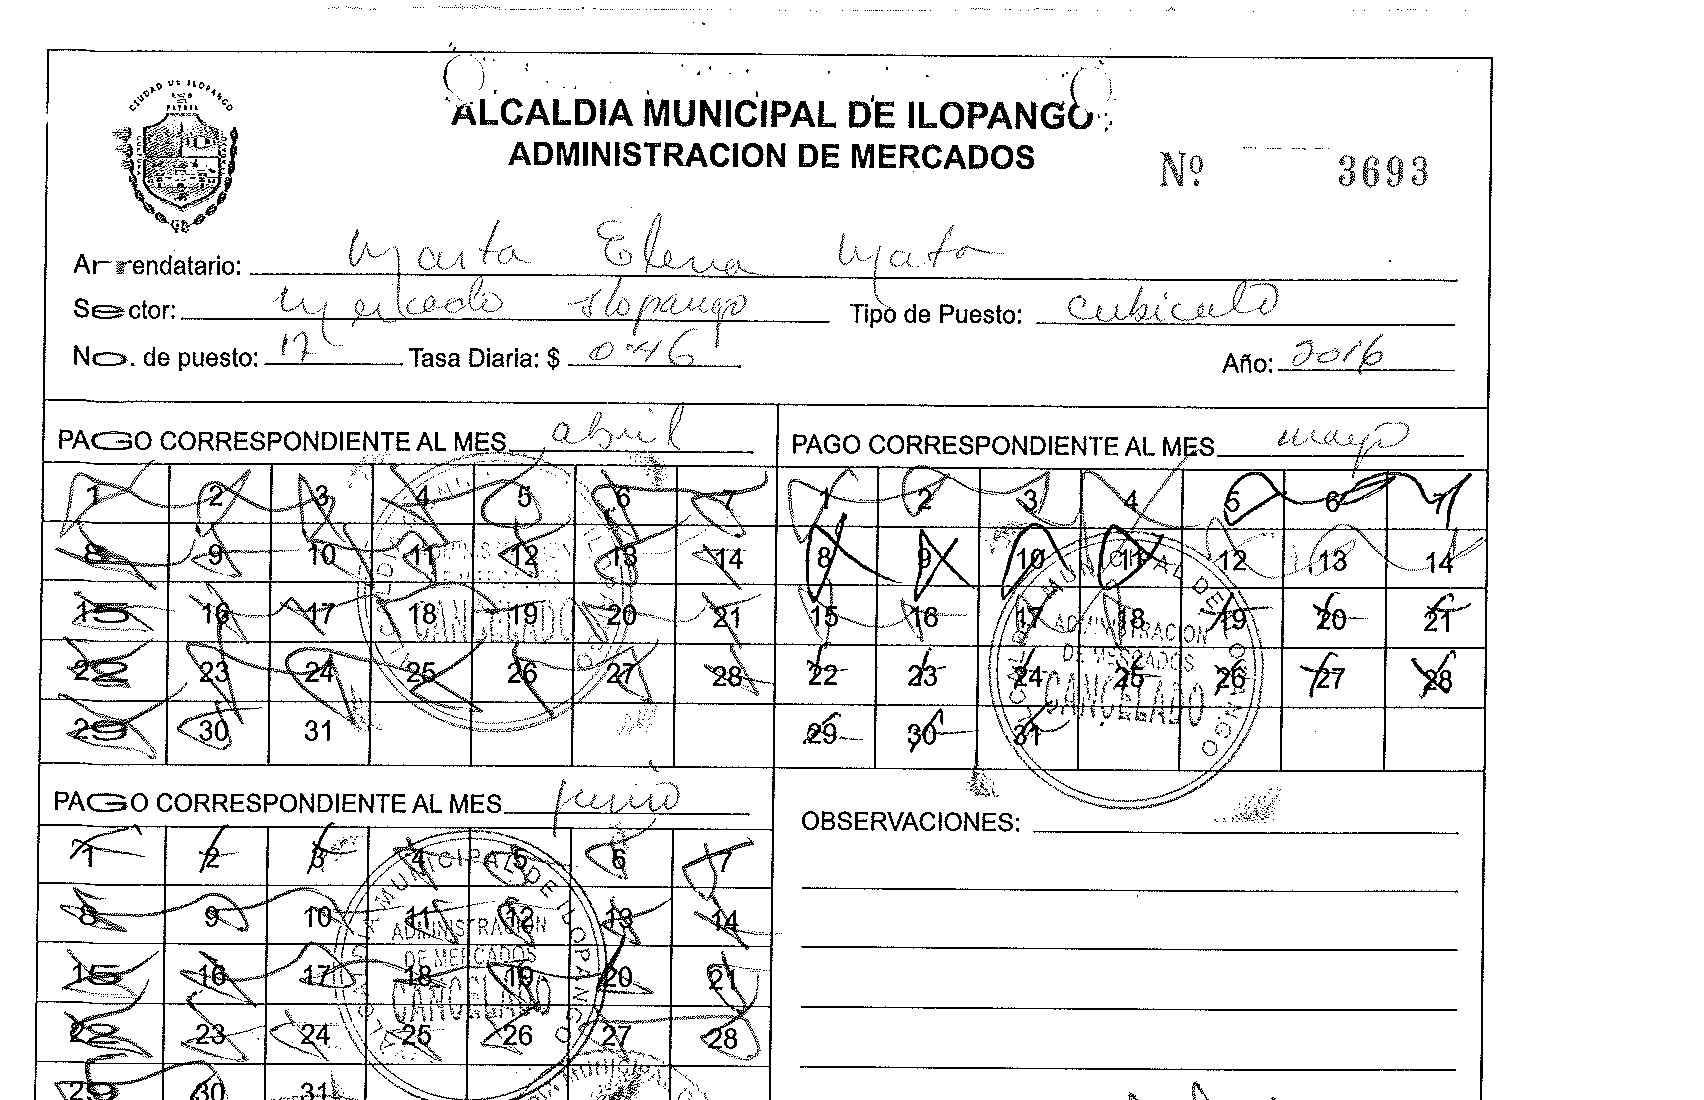 CIUDAD DE ILOPANGO
ALCALDIA MUNICIPAL DE ILOPANGO
ADMINISTRACION DE MERCADOS
Nº 3693
Arrendatario: Marta Elena Mata
Sector: Mercado Ilopango Tipo de Puesto: Cubiculo
No. de puesto: 17 Tasa Diaria: $ 0.46 Año: 2016
PAGO CORRESPONDIENTE AL MES abril
1 2 3 4 5 6 7
8 9 10 11 12 13 14
15 16 17 18 19 20 21
22 23 24 25 26 27 28
29 30 31
ADMINISTRACION
CANCELADO
PAGO CORRESPONDIENTE AL MES mayo
1 2 3 4 5 6 7
8 9 10 11 12 13 14
15 16 17 18 19 20 21
22 23 24 25 26 27 28
29 30 31
MUNICIPAL DE ILOPANGO
ADMINISTRACION
DE MERCADOS
CANCELADO
PAGO CORRESPONDIENTE AL MES junio
1 2 3 4 5 6 7
8 9 10 11 12 13 14
15 16 17 18 19 20 21
22 23 24 25 26 27 28
29 30 31
MUNICIPAL DE ILOPANGO
ADMINISTRACION
DE MERCADOS
CANCELADO
MUNICIPAL
OBSERVACIONES: